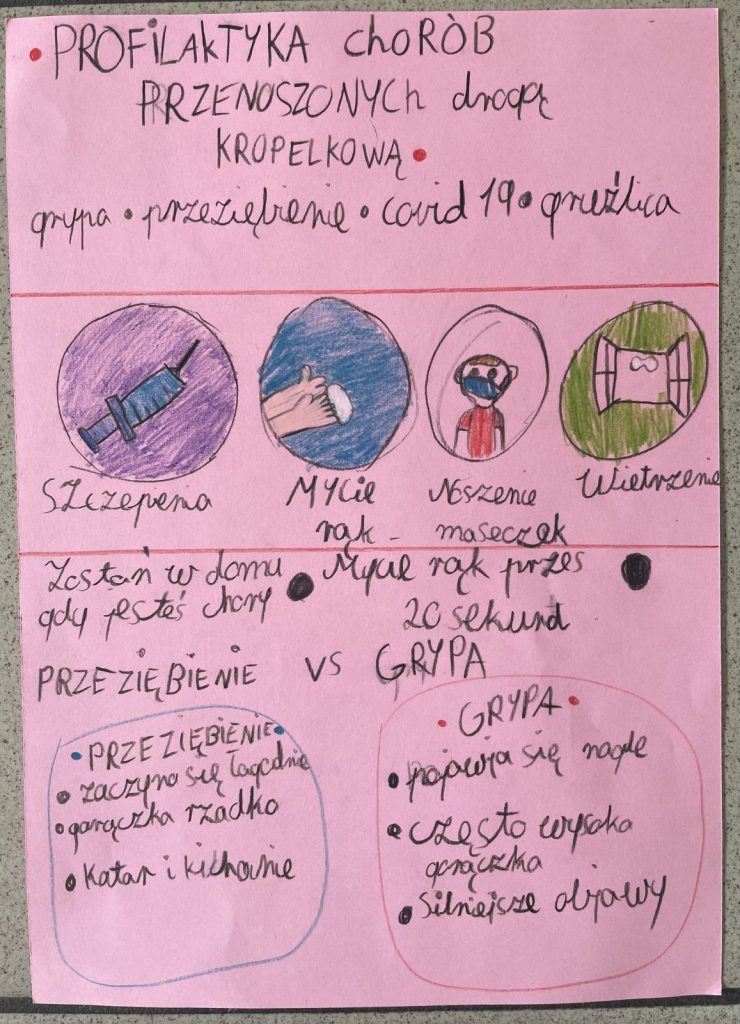 • PROFILAKTYKA choRÒB
PRZENOSZONYCh drogą
KROPELKOWĄ •
grypa • przeziębienie • covid 19 • gruźlica
Szczepienia
MYCie
rąk -
Noszenie
maseczek
Wietrzenie
Zostań w domu
gdy jesteś chory
• Mycie rąk przes •
20 sekund
PRZEZIĘBIENIE vs GRYPA
• PRZEZIĘBIENIE •
• zaczyna się łagodnie
• gorączka rzadko
• Katar i kichanie
• GRYPA •
• pojawia się nagle
• często wysoka
gorączka
• Silniejsze objawy